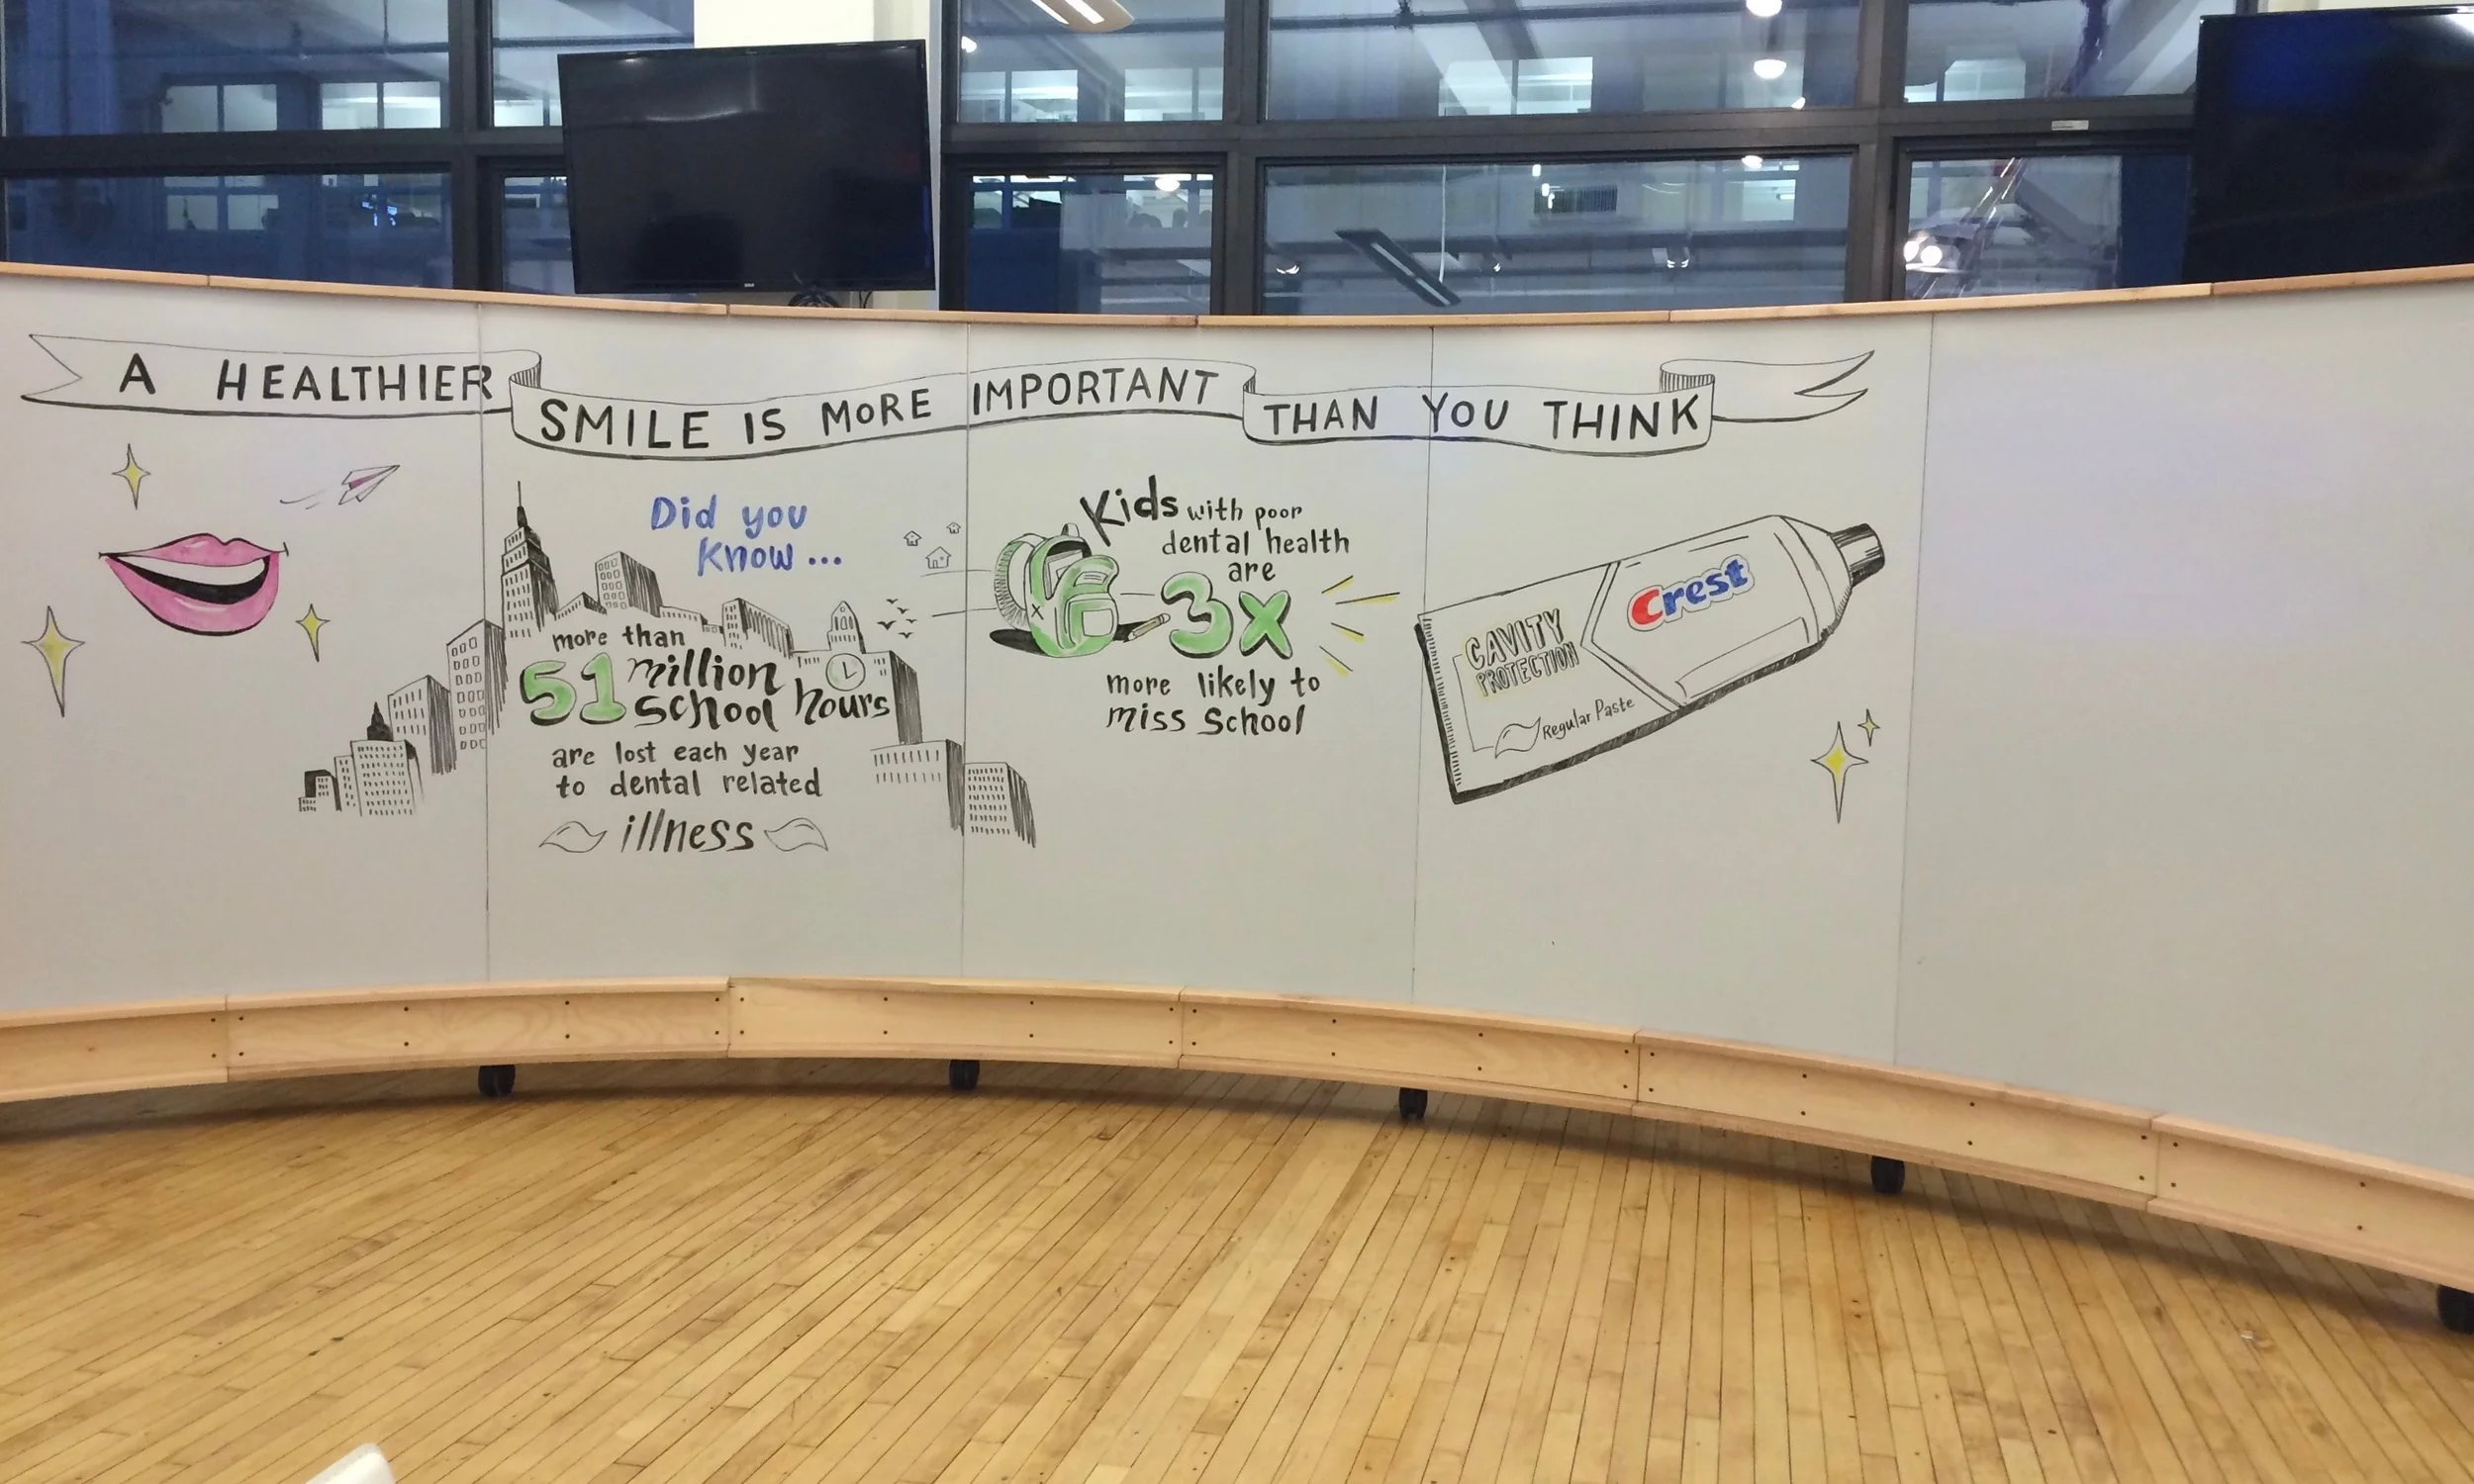 A HEALTHIER SMILE IS MORE IMPORTANT THAN YOU THINK
Did you
Know...
more than
51 million
school hours
are lost each year
to dental related
illness
Kids with poor
dental health
are
3x
more likely to
miss School
Crest
CAVITY
PROTECTION
Regular Paste